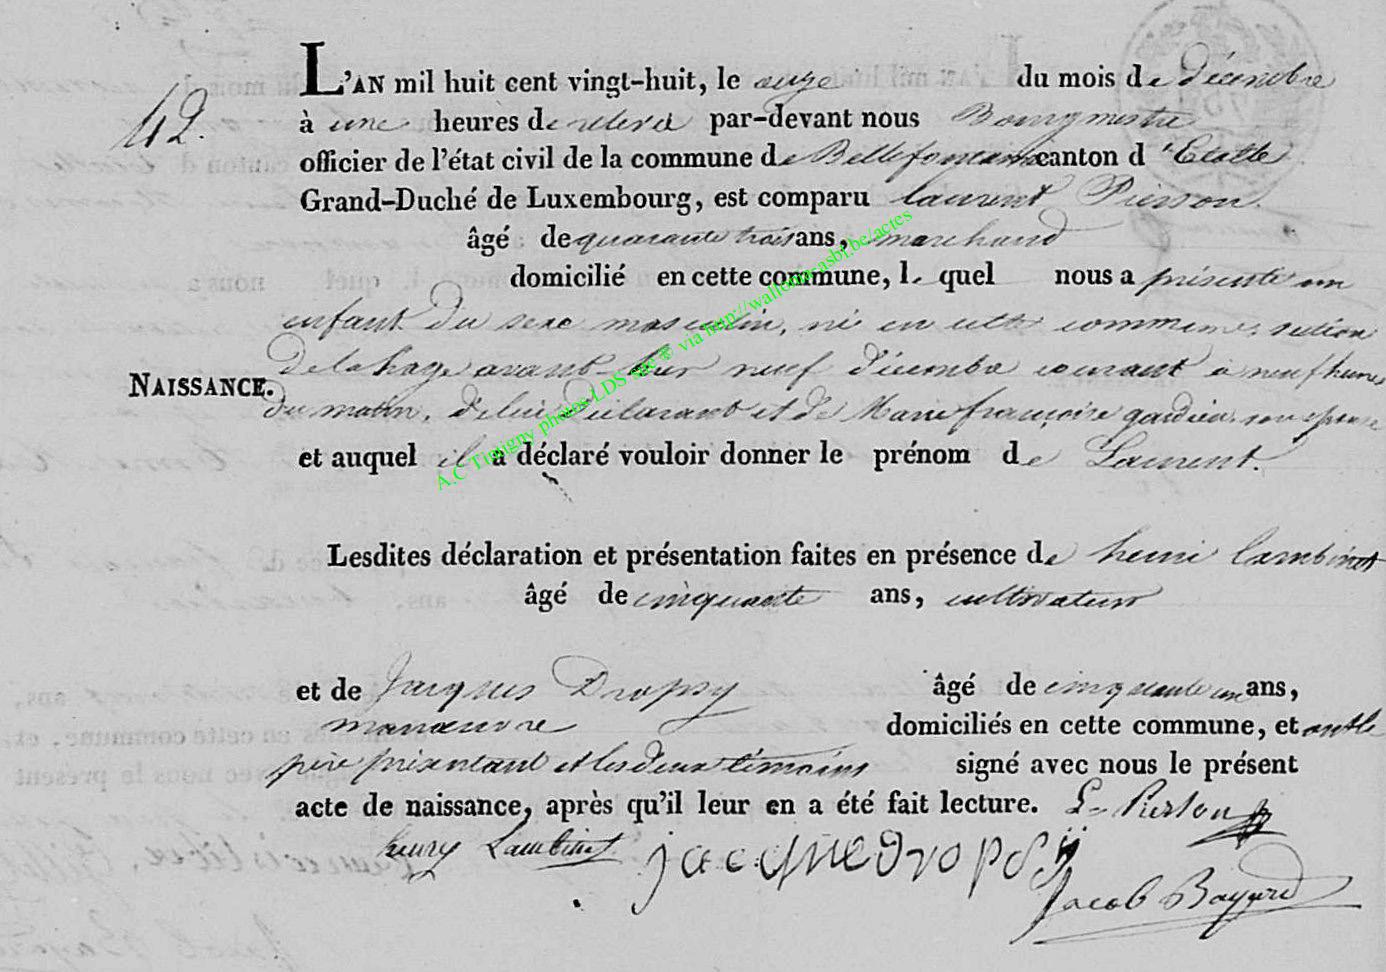 L'AN mil huit cent vingt-huit, le onze du mois de décembre
42. à une heures de relevée par-devant nous Bourgmestre
officier de l'état civil de la commune de Bellefontaine canton d'Etalle
Grand-Duché de Luxembourg, est comparu Laurent Pierson.
âgé de quarante trois ans, marchand
domicilié en cette commune, le quel nous a présenté un
enfant du sexe masculin, né en cette commune, section
de lahage avant-hier neuf décembre courant à neuf heures
NAISSANCE. du matin, de lui déclarant et de Marie françoise gardien son épouse
et auquel il a déclaré vouloir donner le prénom de Laurent.
Lesdites déclaration et présentation faites en présence de henri Lambinet
âgé de cinquante ans, cultivateur
et de Jacques Dropsy âgé de cinquante un ans,
manœuvre domiciliés en cette commune, et ont le
père présentant et les deux témoins signé avec nous le présent
acte de naissance, après qu'il leur en a été fait lecture. L Pierson
henry Lambinet jacque dropsÿ
Jacob Bayard
A.C Tintigny photos LDS sac ® via http://wallonia-asbl.be/actes